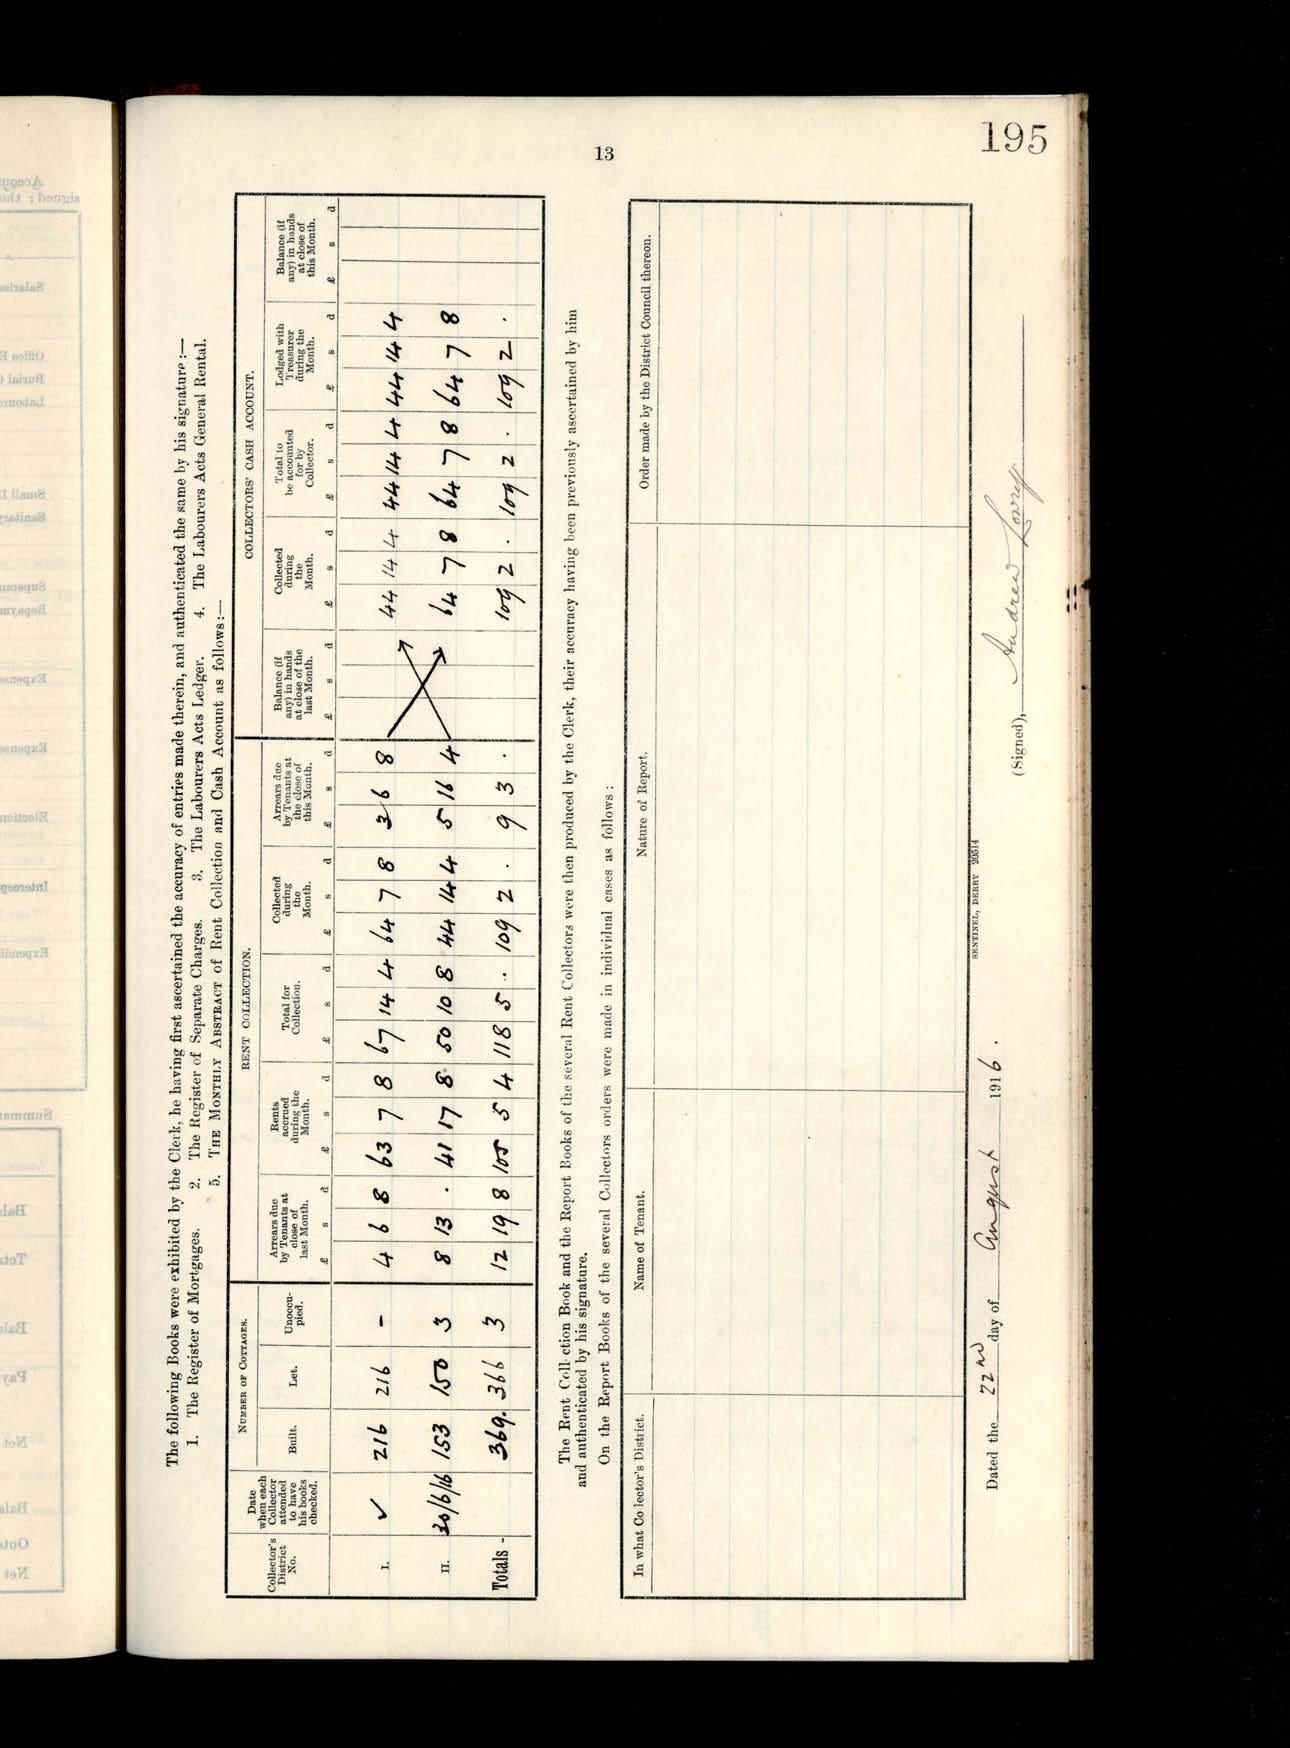 195
13
The following Books were exhibited by the Clerk, he having first ascertained the accuracy of entries made therein, and authenticated the same by his signature :—
1. The Register of Mortgages. 2. The Register of Separate Charges. 3. The Labourers Acts Ledger. 4. The Labourers Acts General Rental.
5. THE MONTHLY ABSTRACT of Rent Collection and Cash Account as follows:—
Collector's District No. | Date when each Collector attended to have his books checked. | NUMBER OF COTTAGES. | RENT COLLECTION. | COLLECTORS' CASH ACCOUNT.
Built. | Let. | Unoccupied. | Arrears due by Tenants at close of last Month. | Rents accrued during the Month. | Total for Collection. | Collected during the Month. | Arrears due by Tenants at the close of this Month. | Balance (if any) in hands at close of the last Month. | Collected during the Month. | Total to be accounted for by Collector. | Lodged with Treasurer during the Month. | Balance (if any) in hands at close of this Month.
£ s d | £ s d | £ s d | £ s d | £ s d | £ s d | £ s d | £ s d | £ s d | £ s d
I. | ✓ | 216 | 216 | - | 4 6 8 | 63 7 8 | 67 14 4 | 64 7 8 | 3 6 8 | | 44 14 4 | 44 14 4 | 44 14 4
II. | 20/6/16 | 153 | 150 | 3 | 8 13 . | 41 17 8 | 50 10 8 | 44 14 4 | 5 16 4 | | 64 7 8 | 64 7 8 | 64 7 8
Totals - | 369. | 366 | 3 | 12 19 8 | 105 5 4 | 118 5 .. | 109 2 . | 9 3 . | | 109 2 . | 109 2 . | 109 2 .
The Rent Collection Book and the Report Books of the several Rent Collectors were then produced by the Clerk, their accuracy having been previously ascertained by him
and authenticated by his signature.
On the Report Books of the several Collectors orders were made in individual cases as follows :
In what Co lector's District. | Name of Tenant. | Nature of Report. | Order made by the District Council thereon.
SENTINEL, DERRY 20514
Dated the 22nd day of August 1916.
(Signed), Andrew Lowry